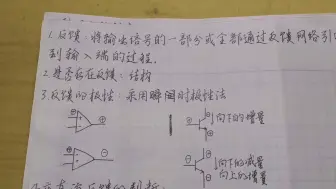 1.反馈：将输出信号的一部分或全部通过反馈网络引
到输入端的过程.
2.是否存在反馈：结构
3.反馈的极性：采用瞬间时极性法
⊕ ⊕ ⊕ ⊖ ↓向下的增量
⊕ ⊖ ⊕ ⊖ ↓向下的减量
向上的增量